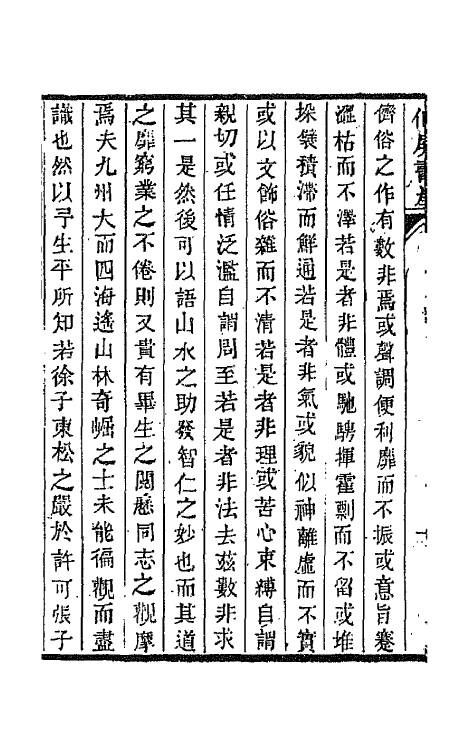 儕俗之作有數非焉或聲調便利靡而不振或意旨蹇
澀枯而不澤若是者非體或馳騁揮霍剽而不留或堆
垛襞積滯而鮮通若是者非氣或貌似神離虛而不實
或以文飾俗雜而不清若是者非理或苦心束縛自謂
親切或任情泛濫自謂周至若是者非法去茲數非求
其一是然後可以語山水之助發智仁之妙也而其道
之靡窮業之不倦則又貴有畢生之閱歷同志之觀摩
焉夫九州大而四海遙山林奇崛之士未能徧觀而盡
識也然以予生平所知若徐子東松之嚴於許可張子